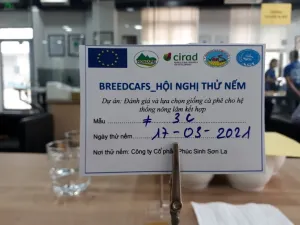 cirad
BREEDCAFS_HỘI NGHỊ THỬ NẾM
Dự án: Đánh giá và lựa chọn giống cà phê cho hệ
thống nông lâm kết hợp
Mẫu # 3C
Ngày thử nếm: 17-03-2021
Nơi thử nếm: Công ty Cổ phần Phúc Sinh Sơn La